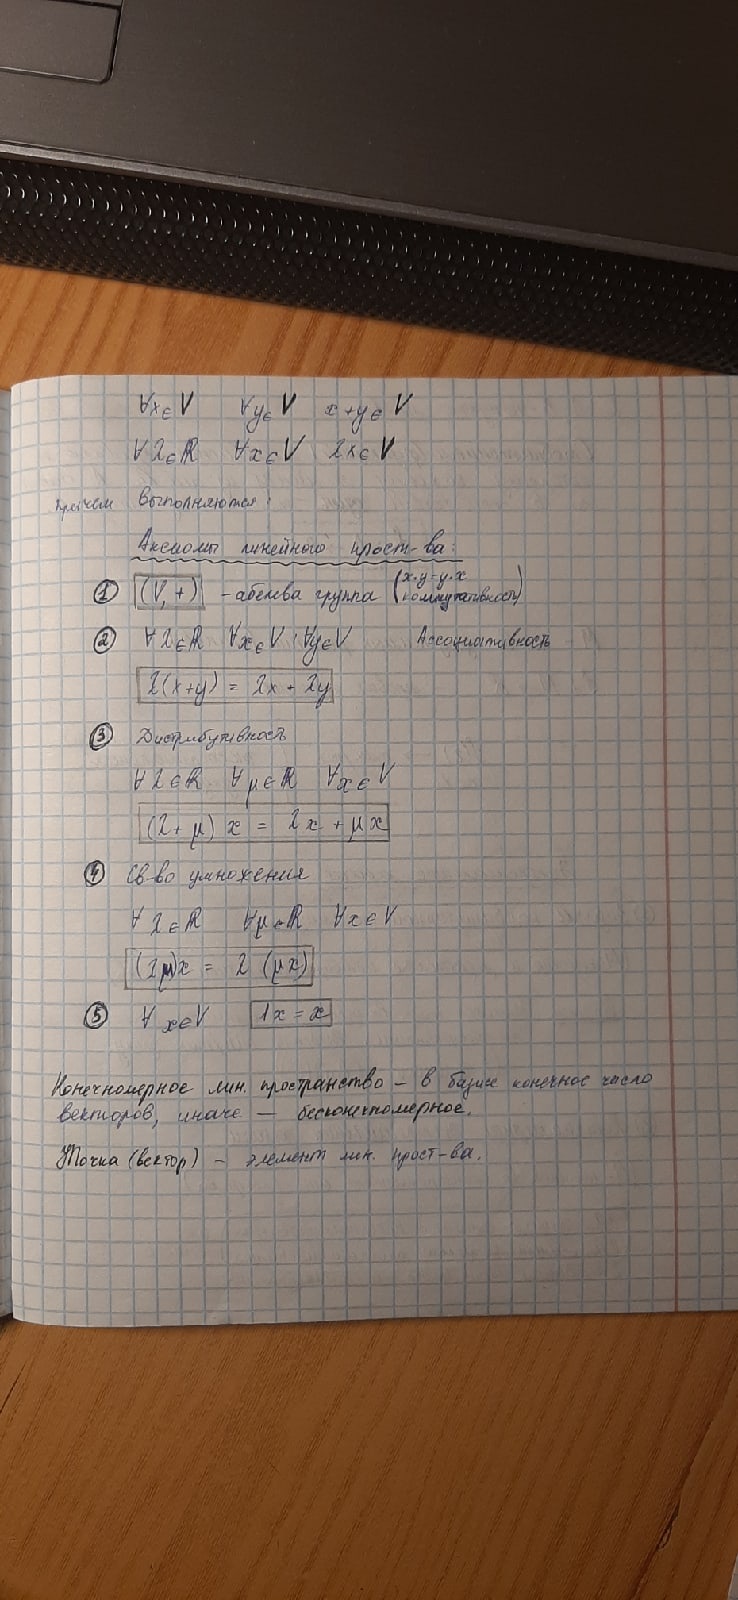 ∀x∈V ∀y∈V x+y∈V
∀λ∈ℝ ∀x∈V λx∈V
причем выполняются:
Аксиомы линейного прост-ва:
① (V,+) – абелева группа (x·y=y·x коммутативность)
② ∀λ∈ℝ ∀x∈V, ∀y∈V Ассоциативность
λ(x+y) = λx + λy
③ Дистрибутивность
∀λ∈ℝ ∀μ∈ℝ ∀x∈V
(λ+μ)x = λx + μx
④ Св-во умножения
∀λ∈ℝ ∀μ∈ℝ ∀x∈V
(λμ)x = λ(μx)
⑤ ∀x∈V 1x = x
Конечномерное лин. пространство – в базисе конечное число
векторов, иначе — бесконечномерное.
Точка (вектор) – элемент лин. прост-ва.